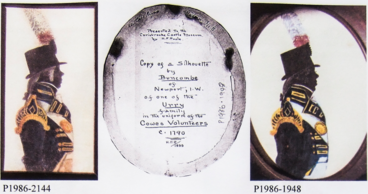 Presented to the
Carisbrooke Castle Museum
by
Copy of a Silhouette
by
Buncombe
of
Newport, I.W.
of one of the
Urry
family
in the uniform of the
Cowes Volunteers
c. 1790
P1986-1948
P1986-2144
P1986-1948